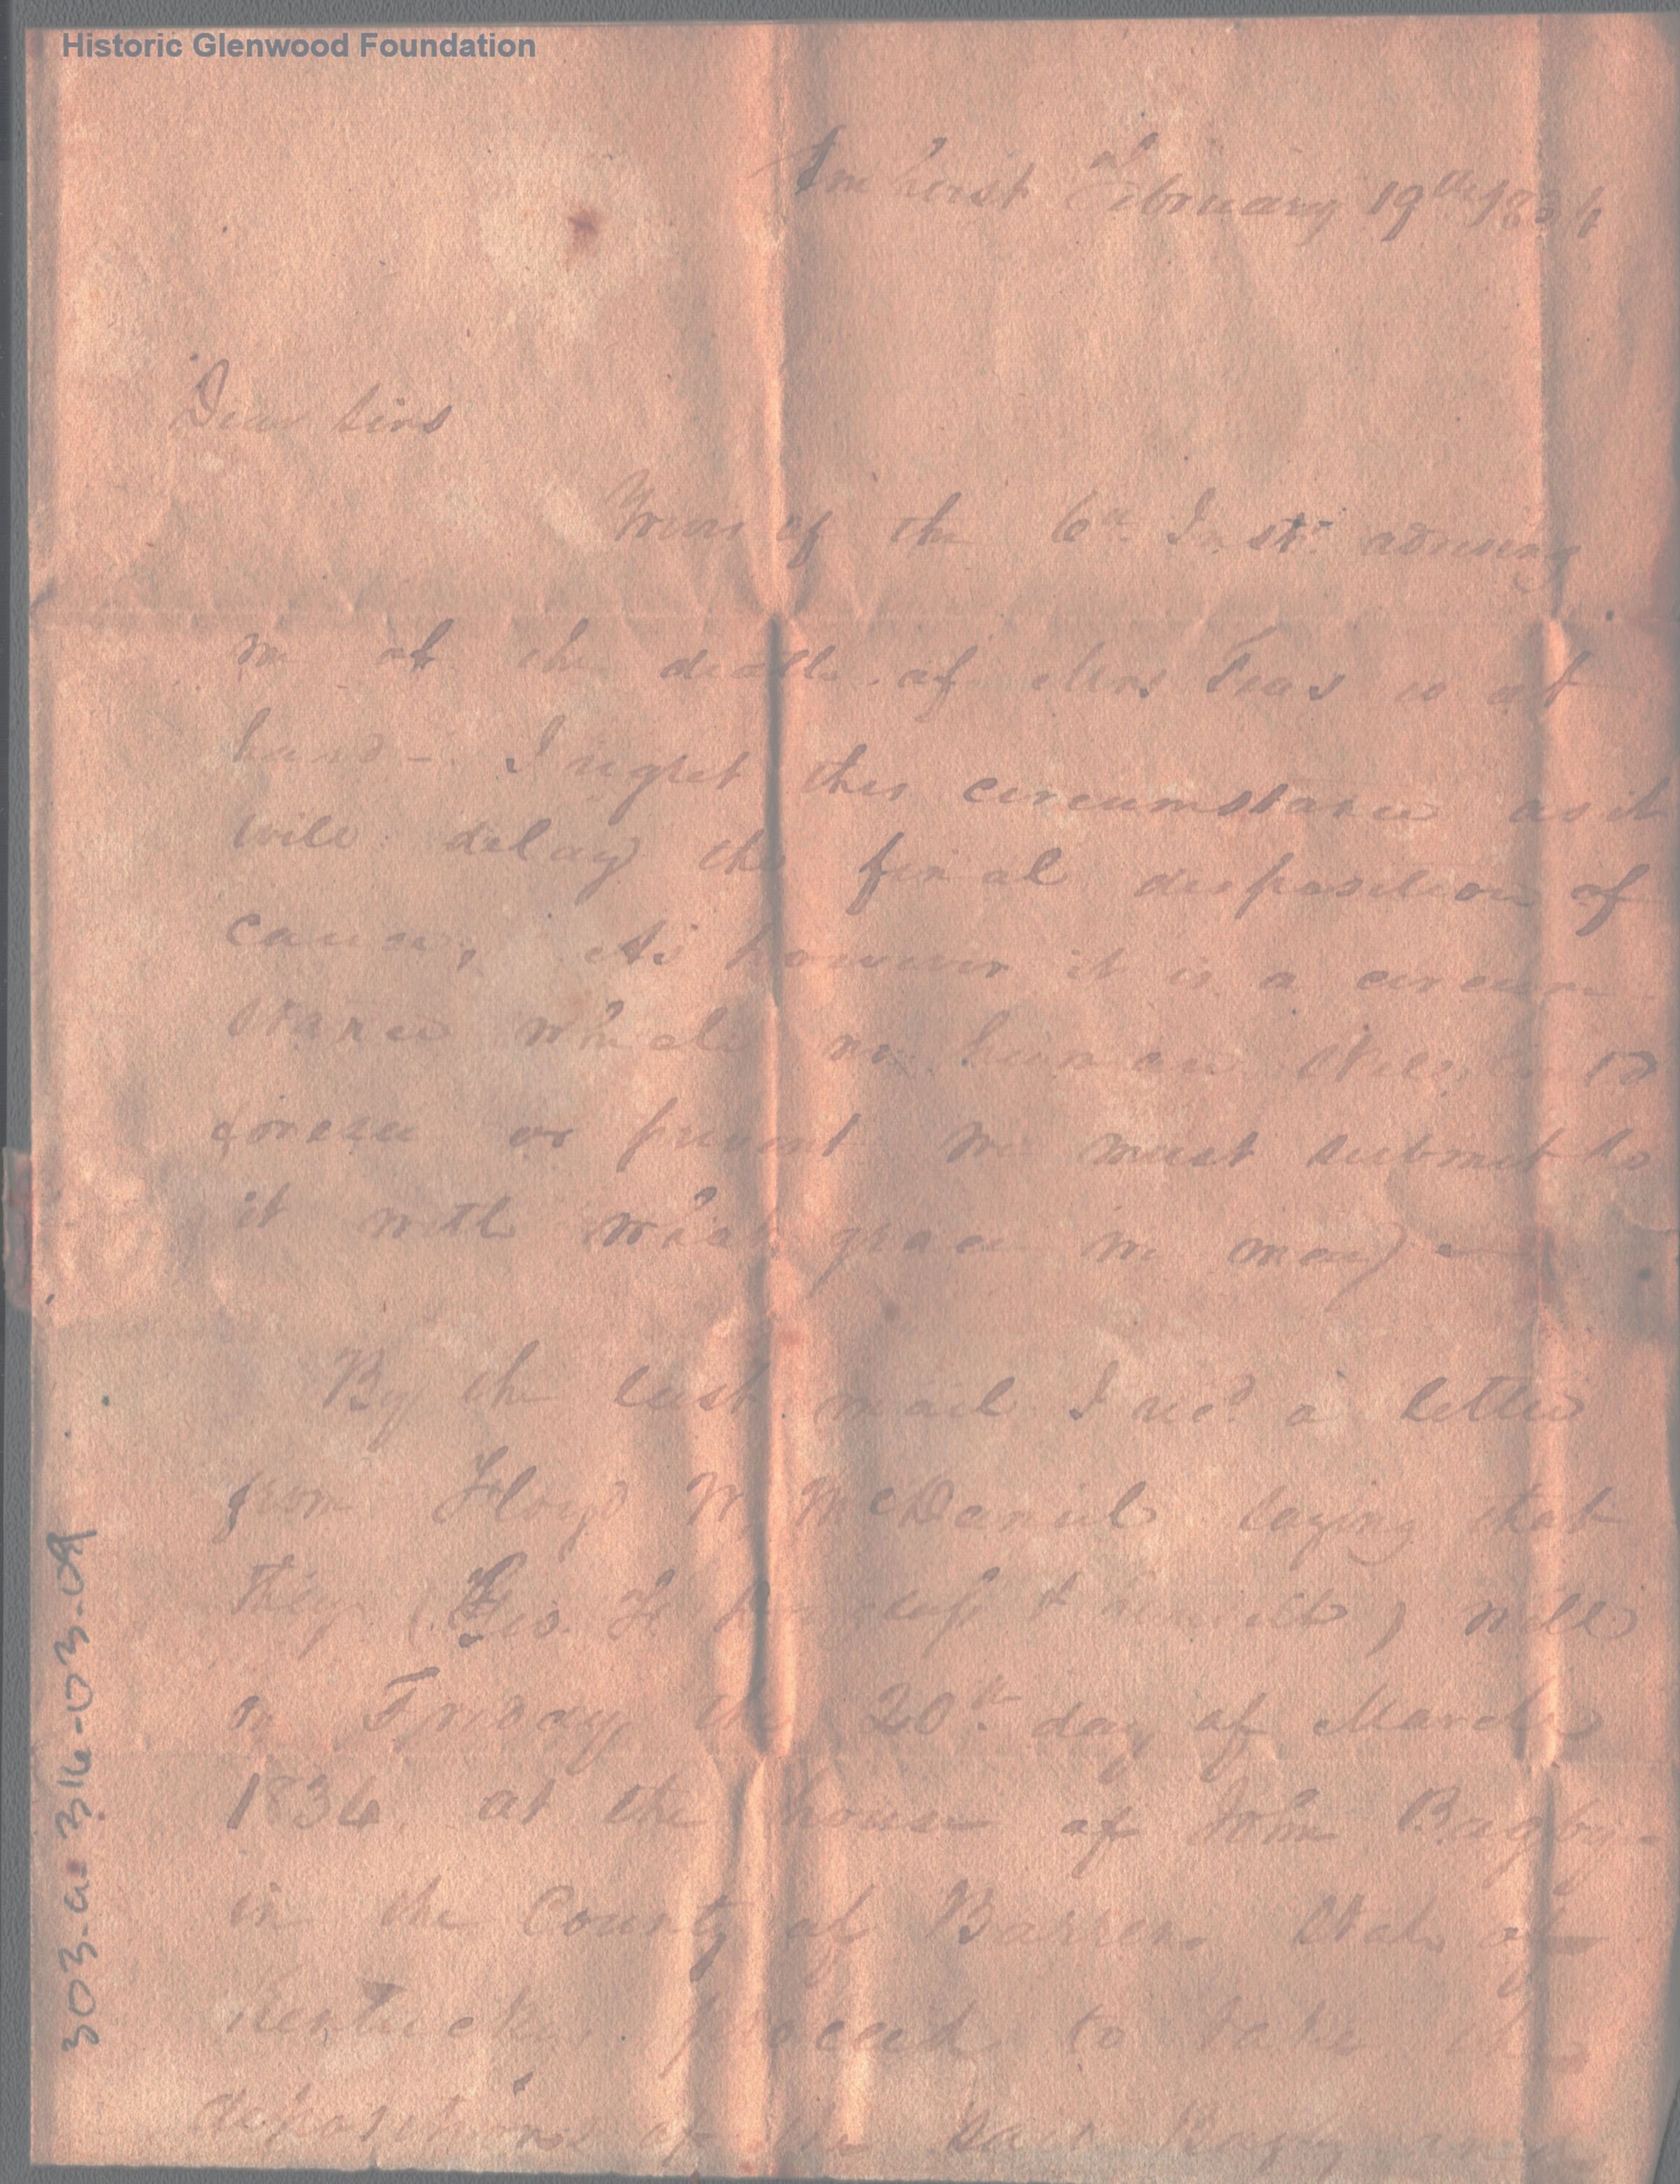 Historic Glenwood Foundation
Amherst February 19th 1836
Dear Sirs
Yours of the 6th Inst. advising
me of the death of Mrs is at
hand - I regret this circumstance as it
will delay the final disposition of
cause, As however it is a circum
stance which no human
foresee or prevent we must submit to
it with what grace we may —
By the last mail I recd a letter
from Floyd W. McDaniel saying that
they (Geo. H. & himself) will
on Friday the 20th day of March
1836 at the house of John Bagby
in the County of Barren State of
Kentucky proceed to take the
depositions of the said Bagby and
303-a-316-03-09